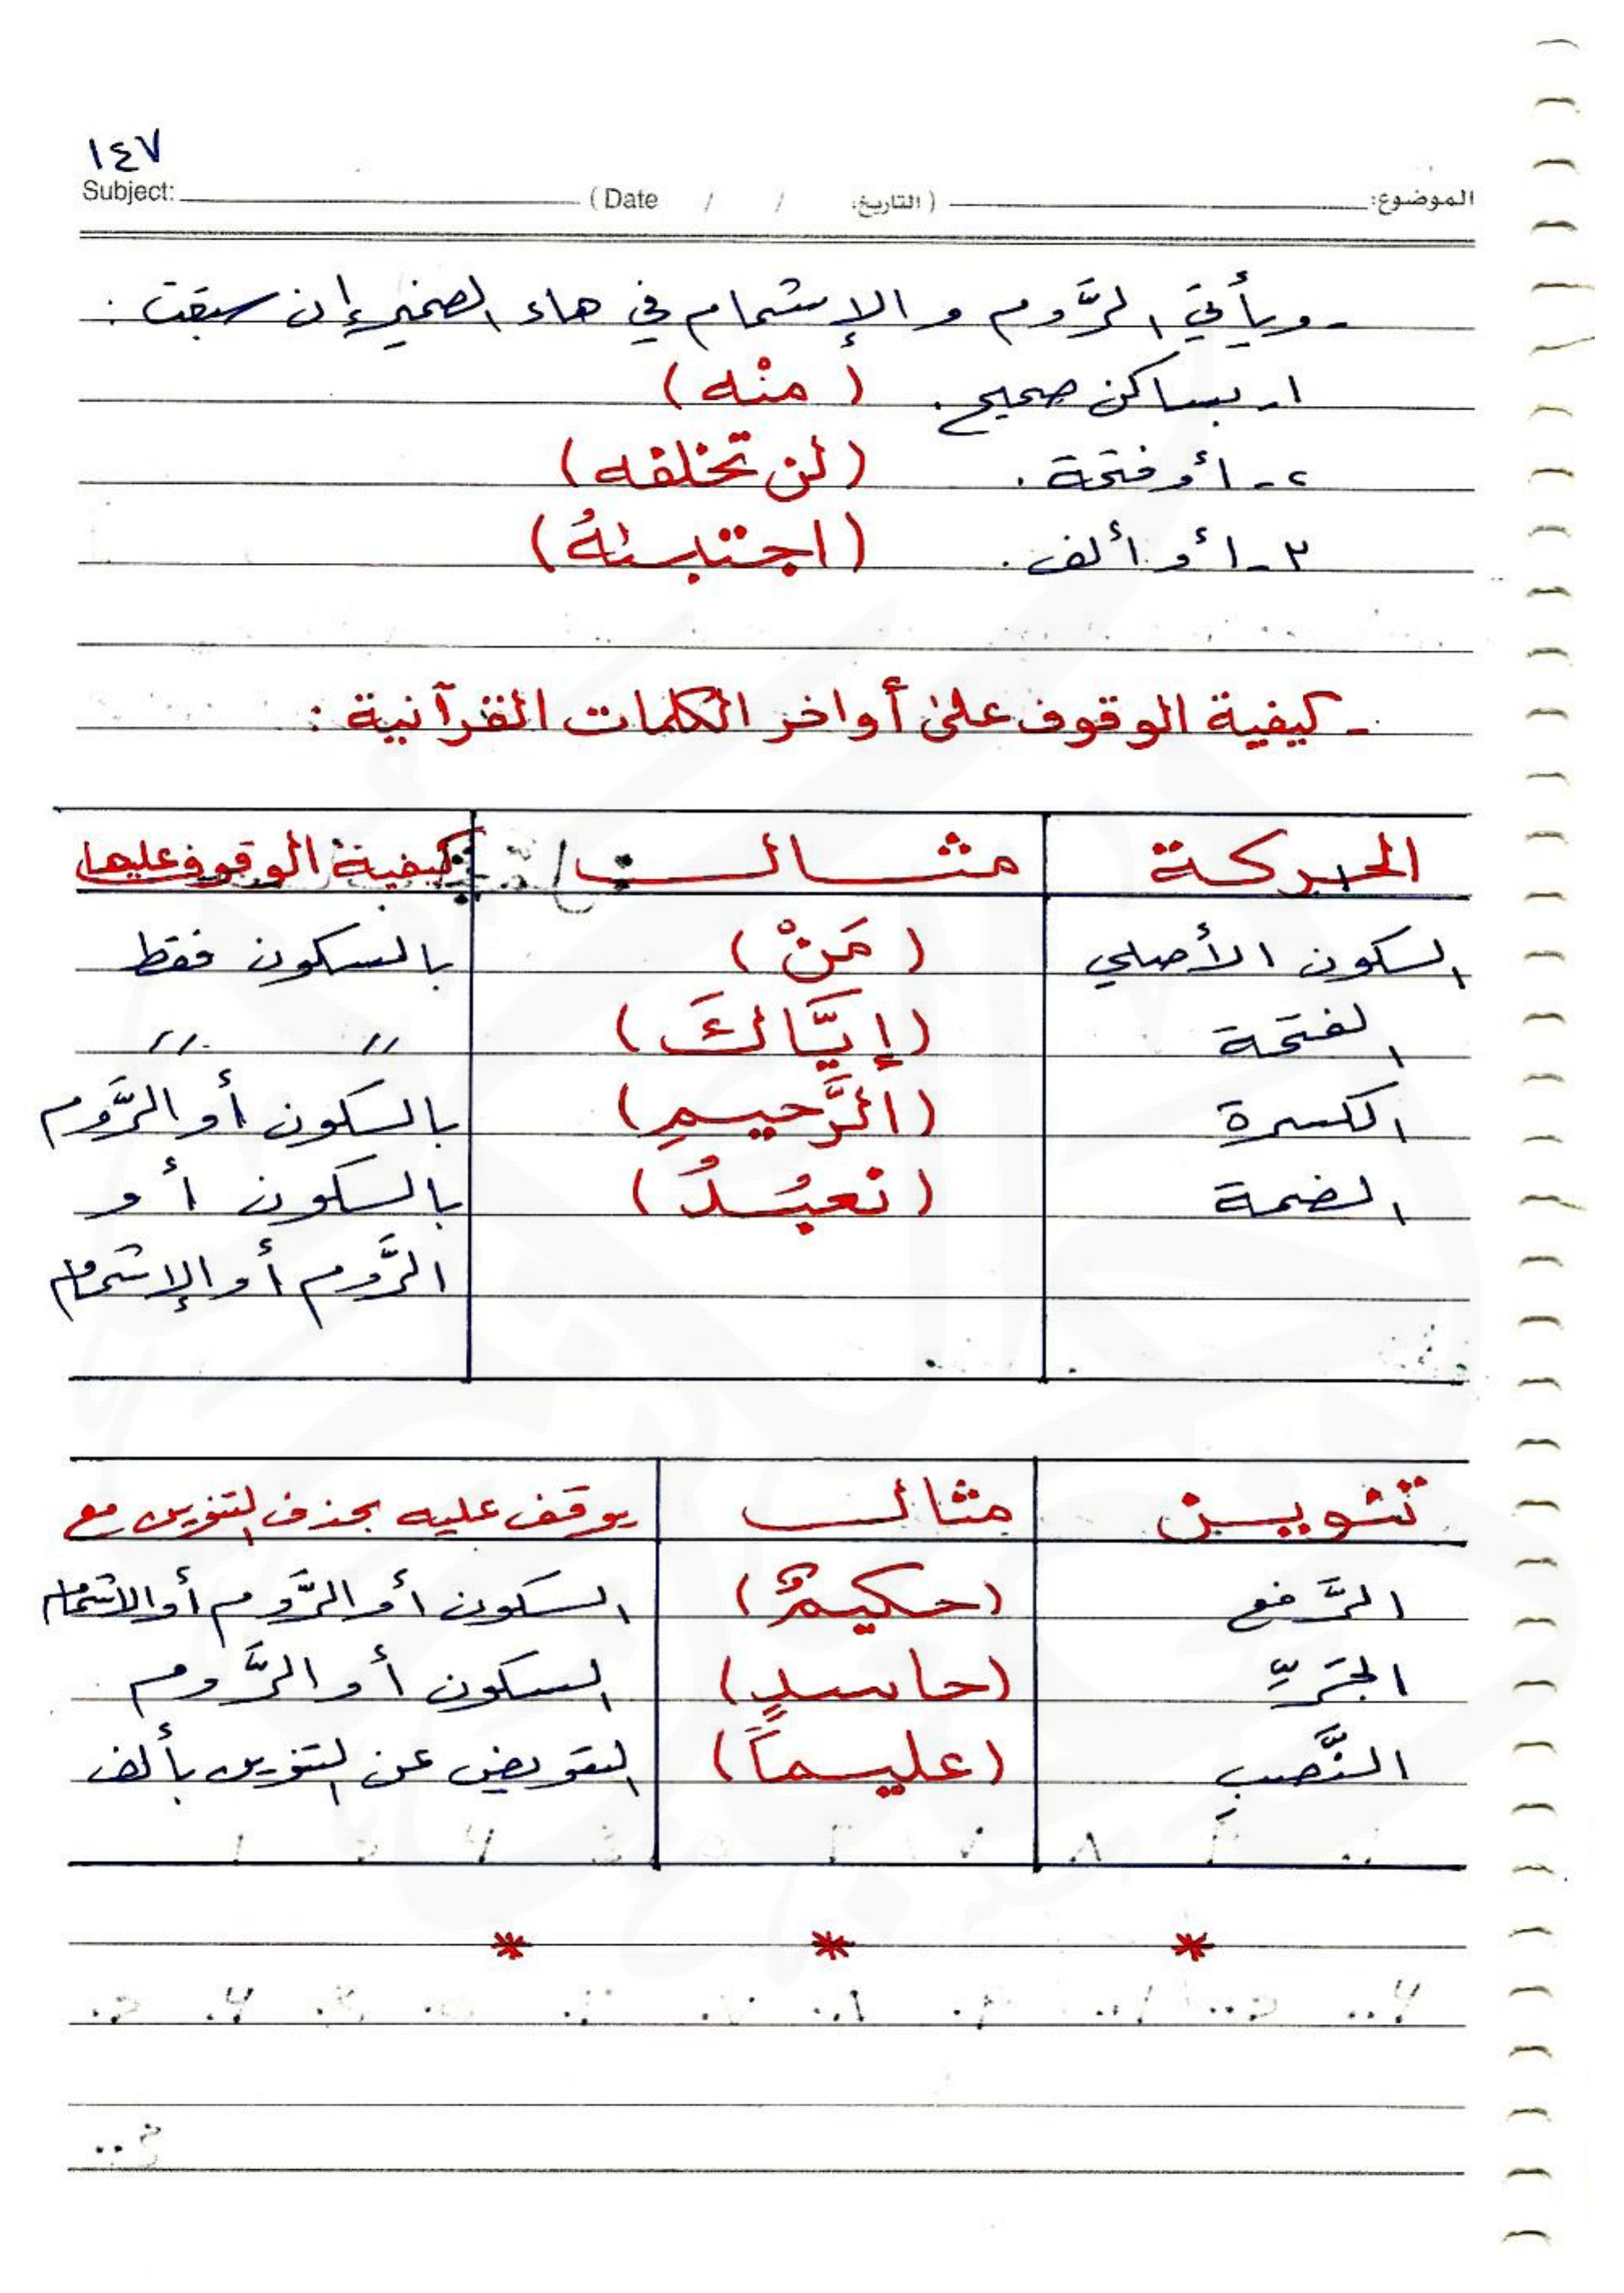 ١٤٧
Subject: (Date / / التاريخ:) الموضوع:
- ويأتي الرَّوم والإشمام في هاء الضمير إن سبقت :
١- بساكن صحيح. (منْه)
٢- أو فتحة. (لن تخلفه)
٣- أو ألف. (اجتبىٰهُ)
- كيفية الوقوف على أواخر الكلمات القرآنية :
الحركة مثال كيفية الوقوف عليها
السكون الأصلي (مَنْ) بالسكون فقط
الفتحة (إيَّاكَ) // //
الكسرة (الرَّحيمِ) بالسكون أو الرَّوم
الضمة (نعبُدُ) بالسكون أو
الرَّوم أو الإشمام
تنوين مثال يوقف عليه بحذف التنوين مع
الرَّفع (حكيمٌ) السكون أو الرَّوم أو الاشمام
الجَرِّ (حاسدٍ) السكون أو الرَّوم
النَّصبِ (عليماً) التعويض عن التنوين بألف
* * *